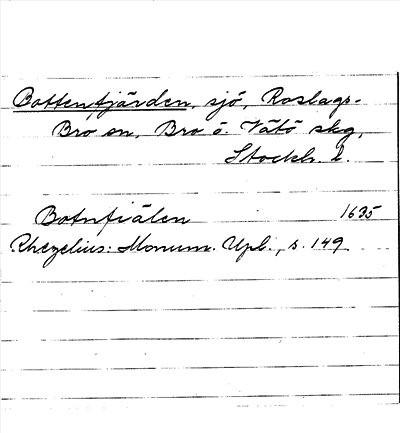 Bottenfjärden, sjö, Roslags-
Bro sn, Bro o. Vätö skg,
Stockh. l.
Botnfiälen 1635
Rhezelius: Monum. Upl., s. 149